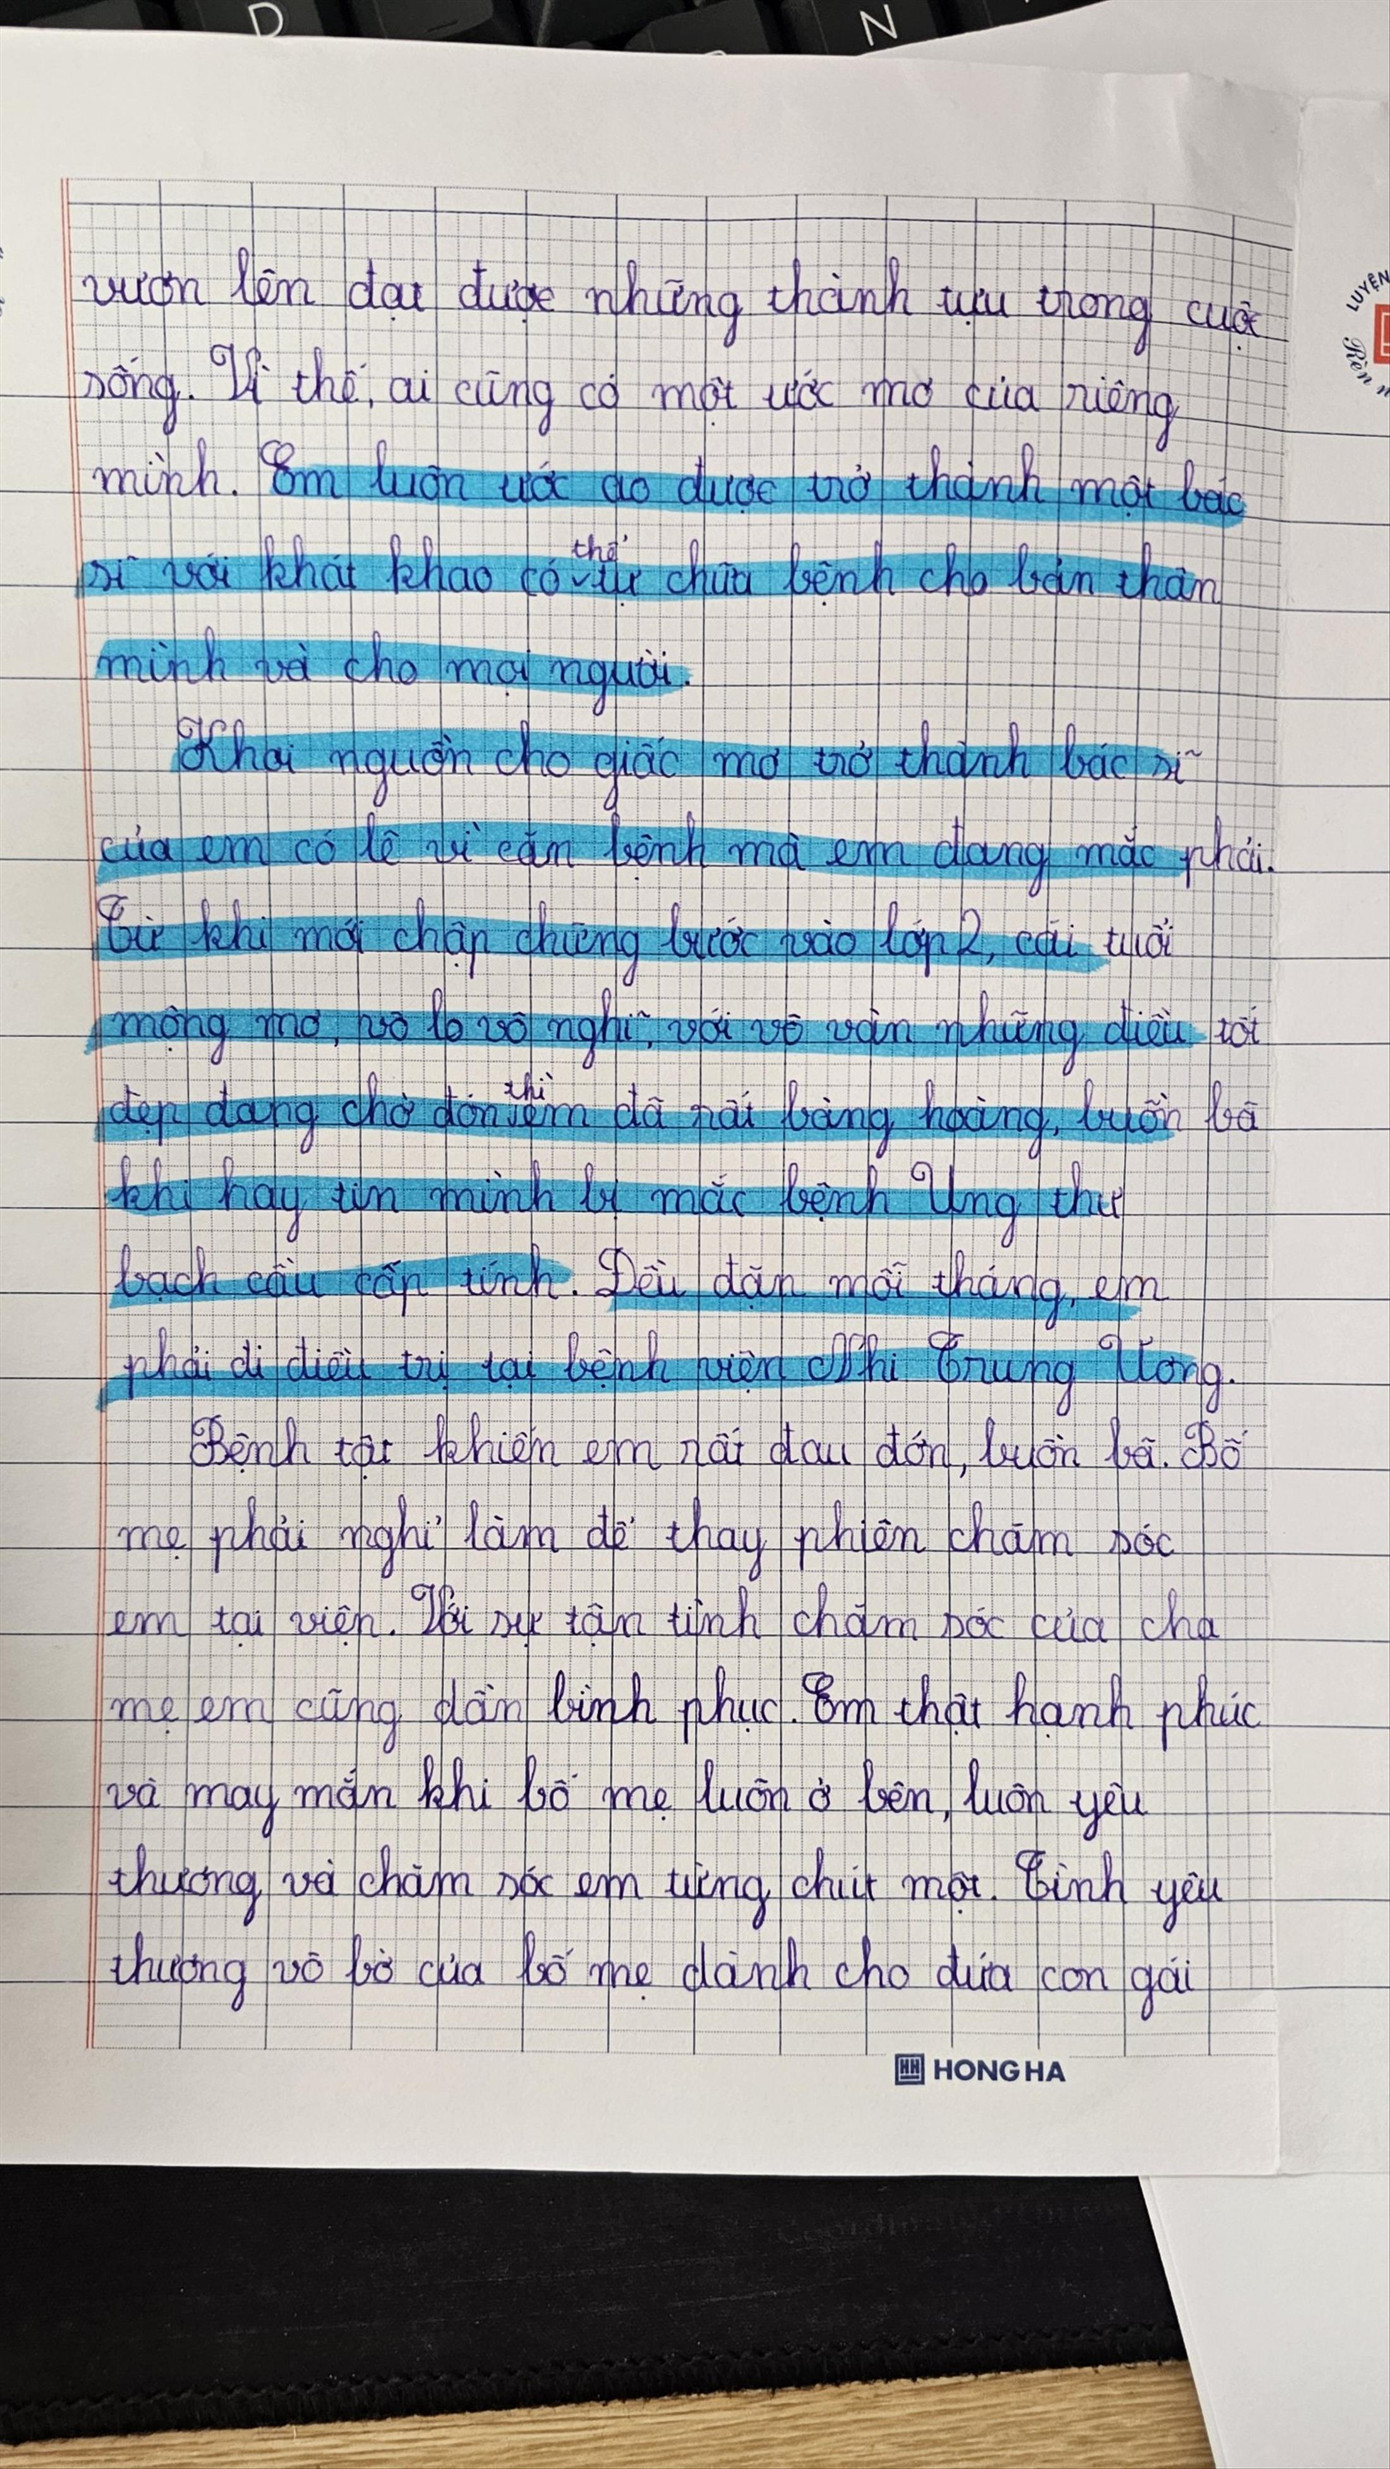 D
N
vươn lên đạt được những thành tựu trong cuộc
sống. Vì thế, ai cũng có một ước mơ của riêng
mình. Em luôn ước ao được trở thành một bác
sĩ với khát khao có thể tự chữa bệnh cho bản thân
mình và cho mọi người.
Khơi nguồn cho giấc mơ trở thành bác sĩ
của em có lẽ vì căn bệnh mà em đang mắc phải.
Từ khi mới chập chững bước vào lớp 2, cái tuổi
mộng mơ, vô lo vô nghĩ, với vô vàn những điều tốt
đẹp đang chờ đón thì em đã rất bàng hoàng, buồn bã
khi hay tin mình bị mắc bệnh Ung thư
bạch cầu cấp tính. Đều đặn mỗi tháng, em
phải đi điều trị tại bệnh viện Nhi Trung Ương.
Bệnh tật khiến em rất đau đớn, buồn bã. Bố
mẹ phải nghỉ làm để thay phiên chăm sóc
em tại viện. Với sự tận tình chăm sóc của cha
mẹ em cũng dần bình phục. Em thật hạnh phúc
và may mắn khi bố mẹ luôn ở bên, luôn yêu
thương và chăm sóc em từng chút một. Tình yêu
thương vô bờ của bố mẹ dành cho đứa con gái
HONG HA
LUYỆN